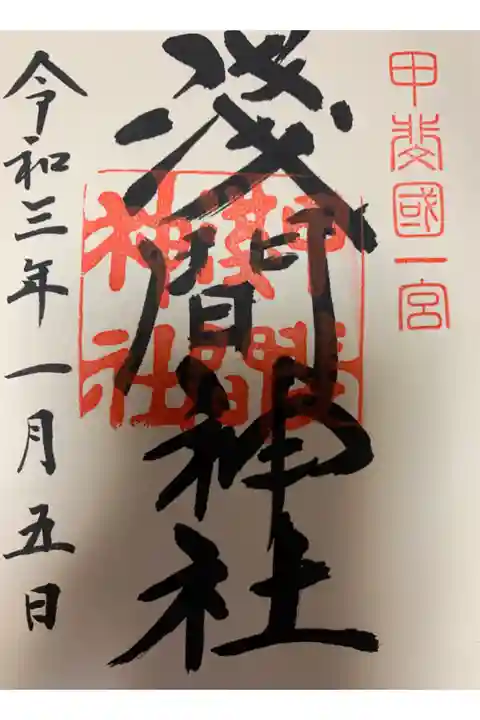 甲斐國一宮
淺間神社
甲斐淺間神社
令和三年一月五日